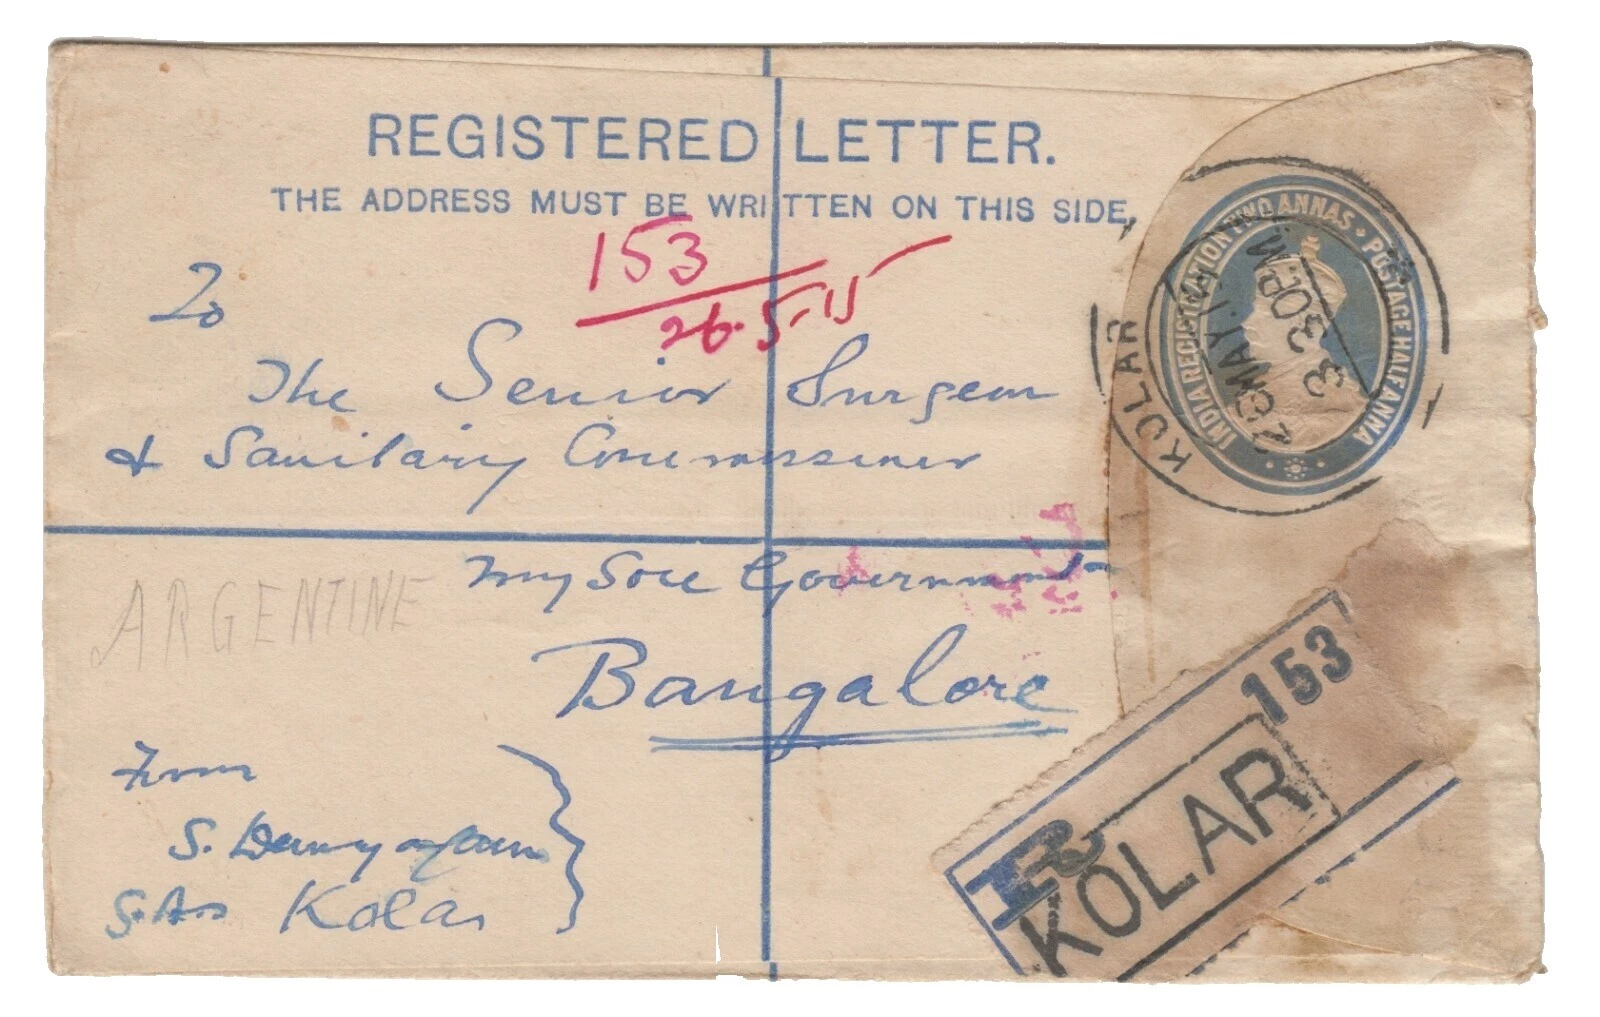 REGISTERED LETTER.
THE ADDRESS MUST BE WRITTEN ON THIS SIDE.
153
26-5-15
INDIA REGISTRATION TWO ANNAS · POSTAGE HALF ANNA
KOLAR
26 MAY.
3 30 P.M
To
The Senior Surgeon
& Sanitary Commissioner
Mysore Government
Bangalore
ARGENTINE
From
S.
Kolar
R
153
KOLAR